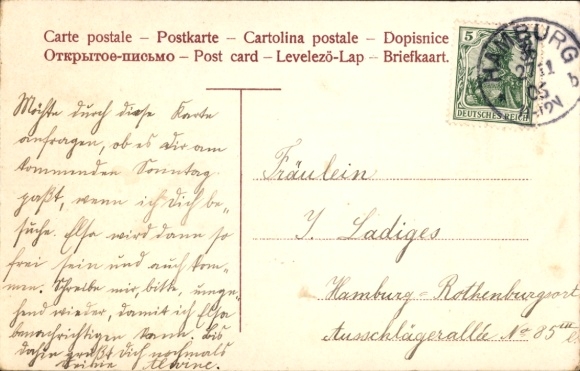 Carte postale – Postkarte – Cartolina postale – Dopisnice
Открытое-письмо – Post card – Levelező-Lap – Briefkaart.
5
DEUTSCHES REICH
HAMBURG
11
05
Möchte durch diese Karte
anfragen, ob es Dir am
kommenden Sonntag
paßt, wenn ich Dich be„
suche. Elsa wird dann so
frei sein und auch kom„
men. Schreibe mir, bitte, umge„
hend wieder, damit ich Elsa
benachrichtigen kann. Bis
dahin grüßt Dich nochmals
Deine Alwine.
Fräulein
J. Ladiges
Hamburg-Rothenburgsort
Ausschlägerallée No 85